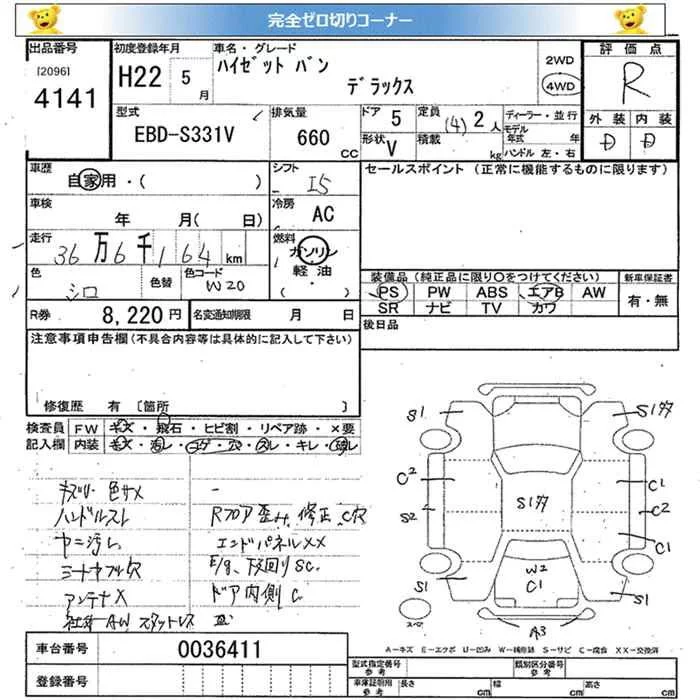 完全ゼロ切りコーナー
出品番号
[2096]
4141
初度登録年月
H22 5 月
車名・グレード
ハイゼット バン
デラックス
2WD
4WD
評価点
R
外装 内装
D D
型式
EBD-S331V
排気量
660 cc
ドア 5
形状 V
定員 (4) 2 人
積載 kg
ディーラー・並行
モデル年式 年
ハンドル 左・右
車歴
自家用・( )
シフト
I5
セールスポイント (正常に機能するものに限ります)
車検
年 月( 日)
冷房
AC
走行
36万6千164 km
燃料
ガソリン
軽油
( ・ )
色
シロ
色替
色コード
W20
装備品 (純正品に限り〇をつけてください)
PS PW ABS エアB AW
SR ナビ TV カワ
新車保証書
有・無
R券 8,220円
名変通知期限 月 日
後日品
注意事項申告欄(不具合内容等は具体的に記入して下さい)
修復歴 有 〔箇所 〕
検査員 FW キズ・飛石・ヒビ割・リペア跡・×要
記入欄 内装 キズ・汚レ・コゲ・穴・スレ・キレ・破レ
キズ有 色サメ
ハンドルスレ
ヤニ汚レ
シートヤブレ穴
アンテナX
社外AW スタットレス
Rフロア歪み、修正、C穴
エンドパネルXX
E/g、下廻りSC.
ドア内側C
S1
C2
S2
S1
S1
C1
C2
C1
S1
W2
C1
A3
A-キズ E-エクボ U-凹み W-補修跡 S-サビ C-腐食 XX-交換済
車台番号 0036411
登録番号
型式指定番号 参考
類別区分番号 参考
車庫証明用 参考
長さ cm
幅 cm
高さ cm